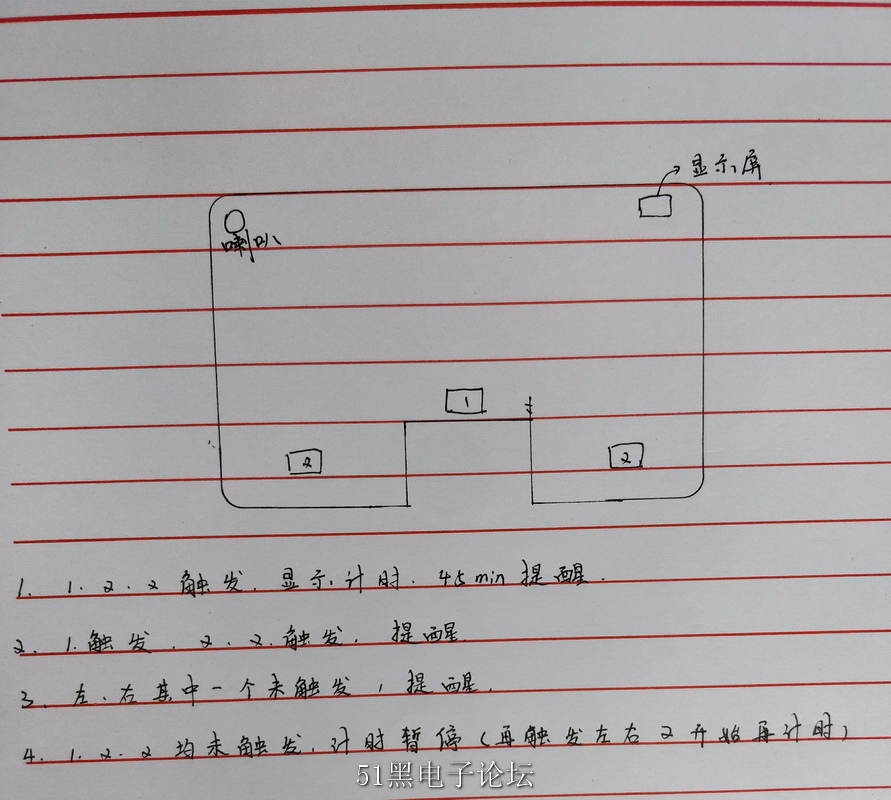 显示屏
喇叭
1
2
2
1. 1. 2. 2 触发. 显示计时. 45min 提醒.
2. 1.触发. 2. 2.触发, 提醒.
3. 左.右其中一个未触发, 提醒.
4. 1. 2. 2 均未触发, 计时暂停(再触发左右2开始再计时)
51黑电子论坛